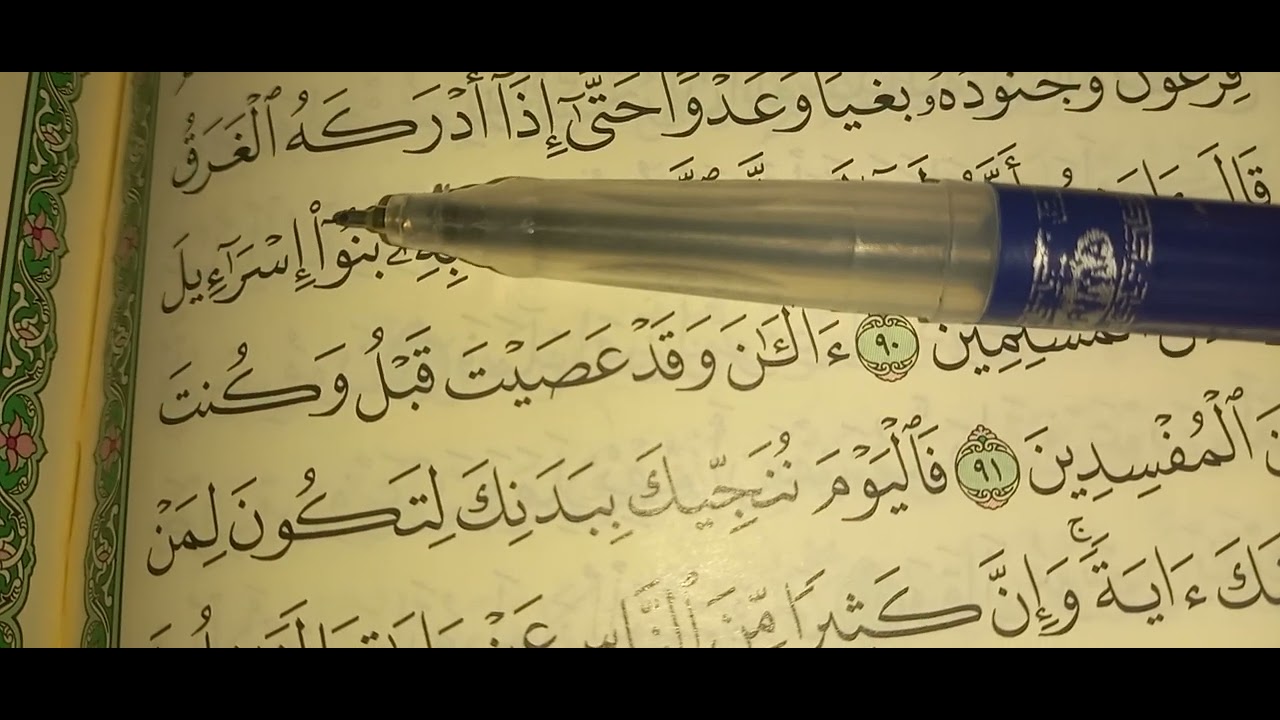 فِرْعَوْنُ وَجُنُودُهُۥ بَغْيًا وَعَدْوًا حَتَّىٰٓ إِذَآ أَدْرَكَهُ ٱلْغَرَقُ
قَالَ بِهِۦ بَنُوٓا۟ إِسْرَٰٓءِيلَ
ٱلْمُسْلِمِينَ ٩٠ ءَآلْـَٰٔنَ وَقَدْ عَصَيْتَ قَبْلُ وَكُنتَ
ٱلْمُفْسِدِينَ ٩١ فَٱلْيَوْمَ نُنَجِّيكَ بِبَدَنِكَ لِتَكُونَ لِمَنْ
ءَايَةً ۚ وَإِنَّ كَثِيرًا مِّنَ ٱلنَّاسِ عَنْ